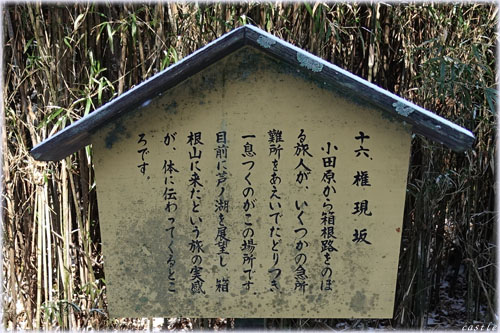 十六、権現坂
小田原から箱根路をのぼ
る旅人が、いくつかの急所
難所をあえいでたどりつき
一息つくのがこの場所です
目前に芦ノ湖を展望し、箱
根山に来たという旅の実感
が、体に伝わってくるとこ
ろです。
castle